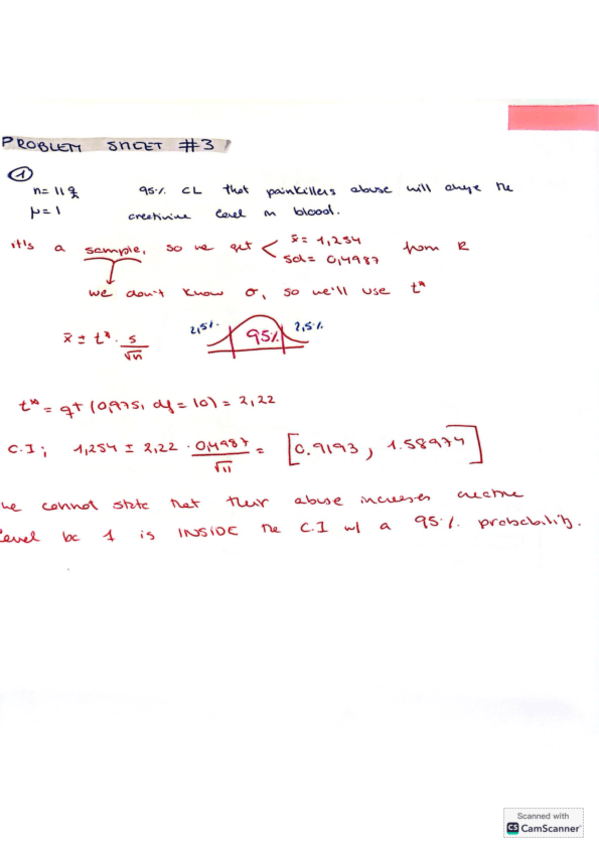 PROBLEM SHEET #3
1
n= 11 95% CL that painkillers abuse will change the
μ=1 creatinine level in blood.
it's a sample, so we get < x̄= 1,254 from R
sd= 0,4987
we don't know σ, so we'll use t*
x̄ ± t* · s/√n 2,5% 95% 2,5%
t* = qt (0,975, df = 10) = 2,22
C.I; 1,254 ± 2,22 · 0,4987/√11 = [0.9193, 1.58974]
we cannot state that their abuse increases creatine
level bc 1 is INSIDE the C.I w/ a 95% probability.
Scanned with
CS CamScanner